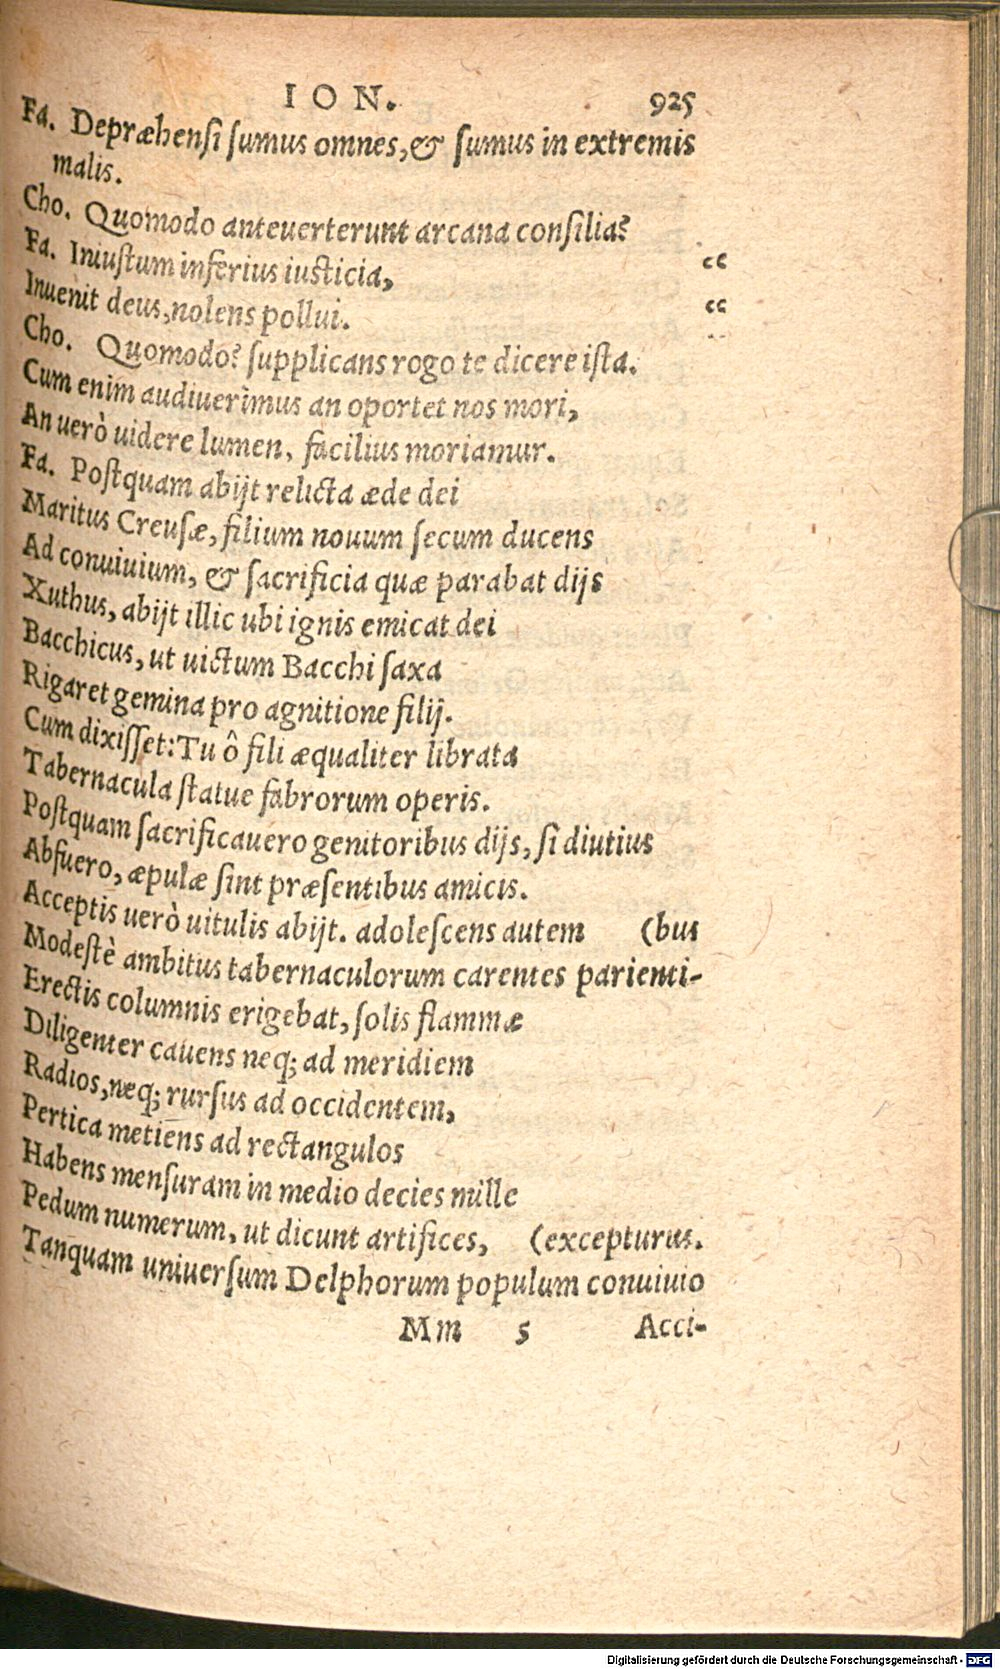 ION. 925
Fa. Depræhensi sumus omnes, & sumus in extremis
malis.
Cho. Quomodo anteuerterunt arcana consilia?
Fa. Iniustum inferius iusticia, “
Inuenit deus, nolens pollui. “
Cho. Quomodo? supplicans rogo te dicere ista.
Cum enim audiuerimus an oportet nos mori,
An uerò uidere lumen, facilius moriamur.
Fa. Postquam abijt relicta æde dei
Maritus Creusæ, filium nouum secum ducens
Ad conuiuium, & sacrificia quæ parabat dijs
Xuthus, abijt illic ubi ignis emicat dei
Bacchicus, ut uictum Bacchi saxa
Rigaret gemina pro agnitione filij.
Cum dixisset: Tu ô fili æqualiter librata
Tabernacula statue fabrorum operis.
Postquam sacrificauero genitoribus dijs, si diutius
Abfuero, æpulæ sint præsentibus amicis.
Acceptis uerò uitulis abijt. adolescens autem (bus
Modestè ambitus tabernaculorum carentes parienti-
Erectis columnis erigebat, solis flammæ
Diligenter cauens neq; ad meridiem
Radios, neq; rursus ad occidentem,
Pertica metiens ad rectangulos
Habens mensuram in medio decies mille
Pedum numerum, ut dicunt artifices, (excepturus.
Tanquam uniuersum Delphorum populum conuiuio
Mm 5 Acci-
Digitalisierung gefördert durch die Deutsche Forschungsgemeinschaft - DFG